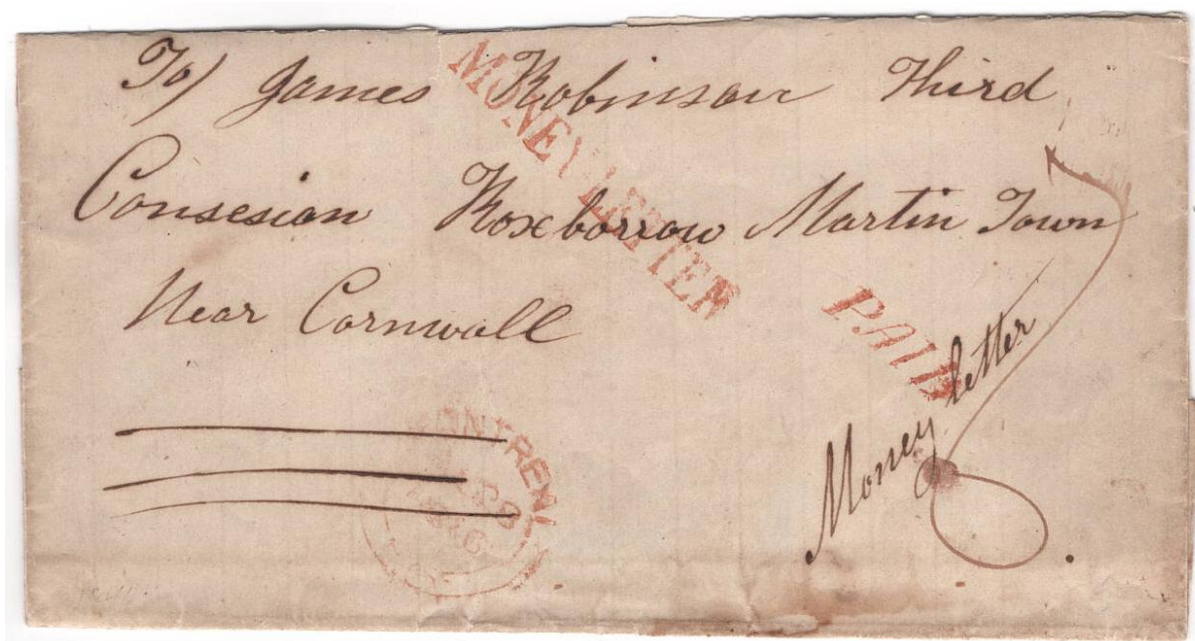 To/ James Robinson Third
Consesion Roxborrow Martin Town
Near Cornwall
MONEY LETTER
PAID
Money letter
MONTREAL